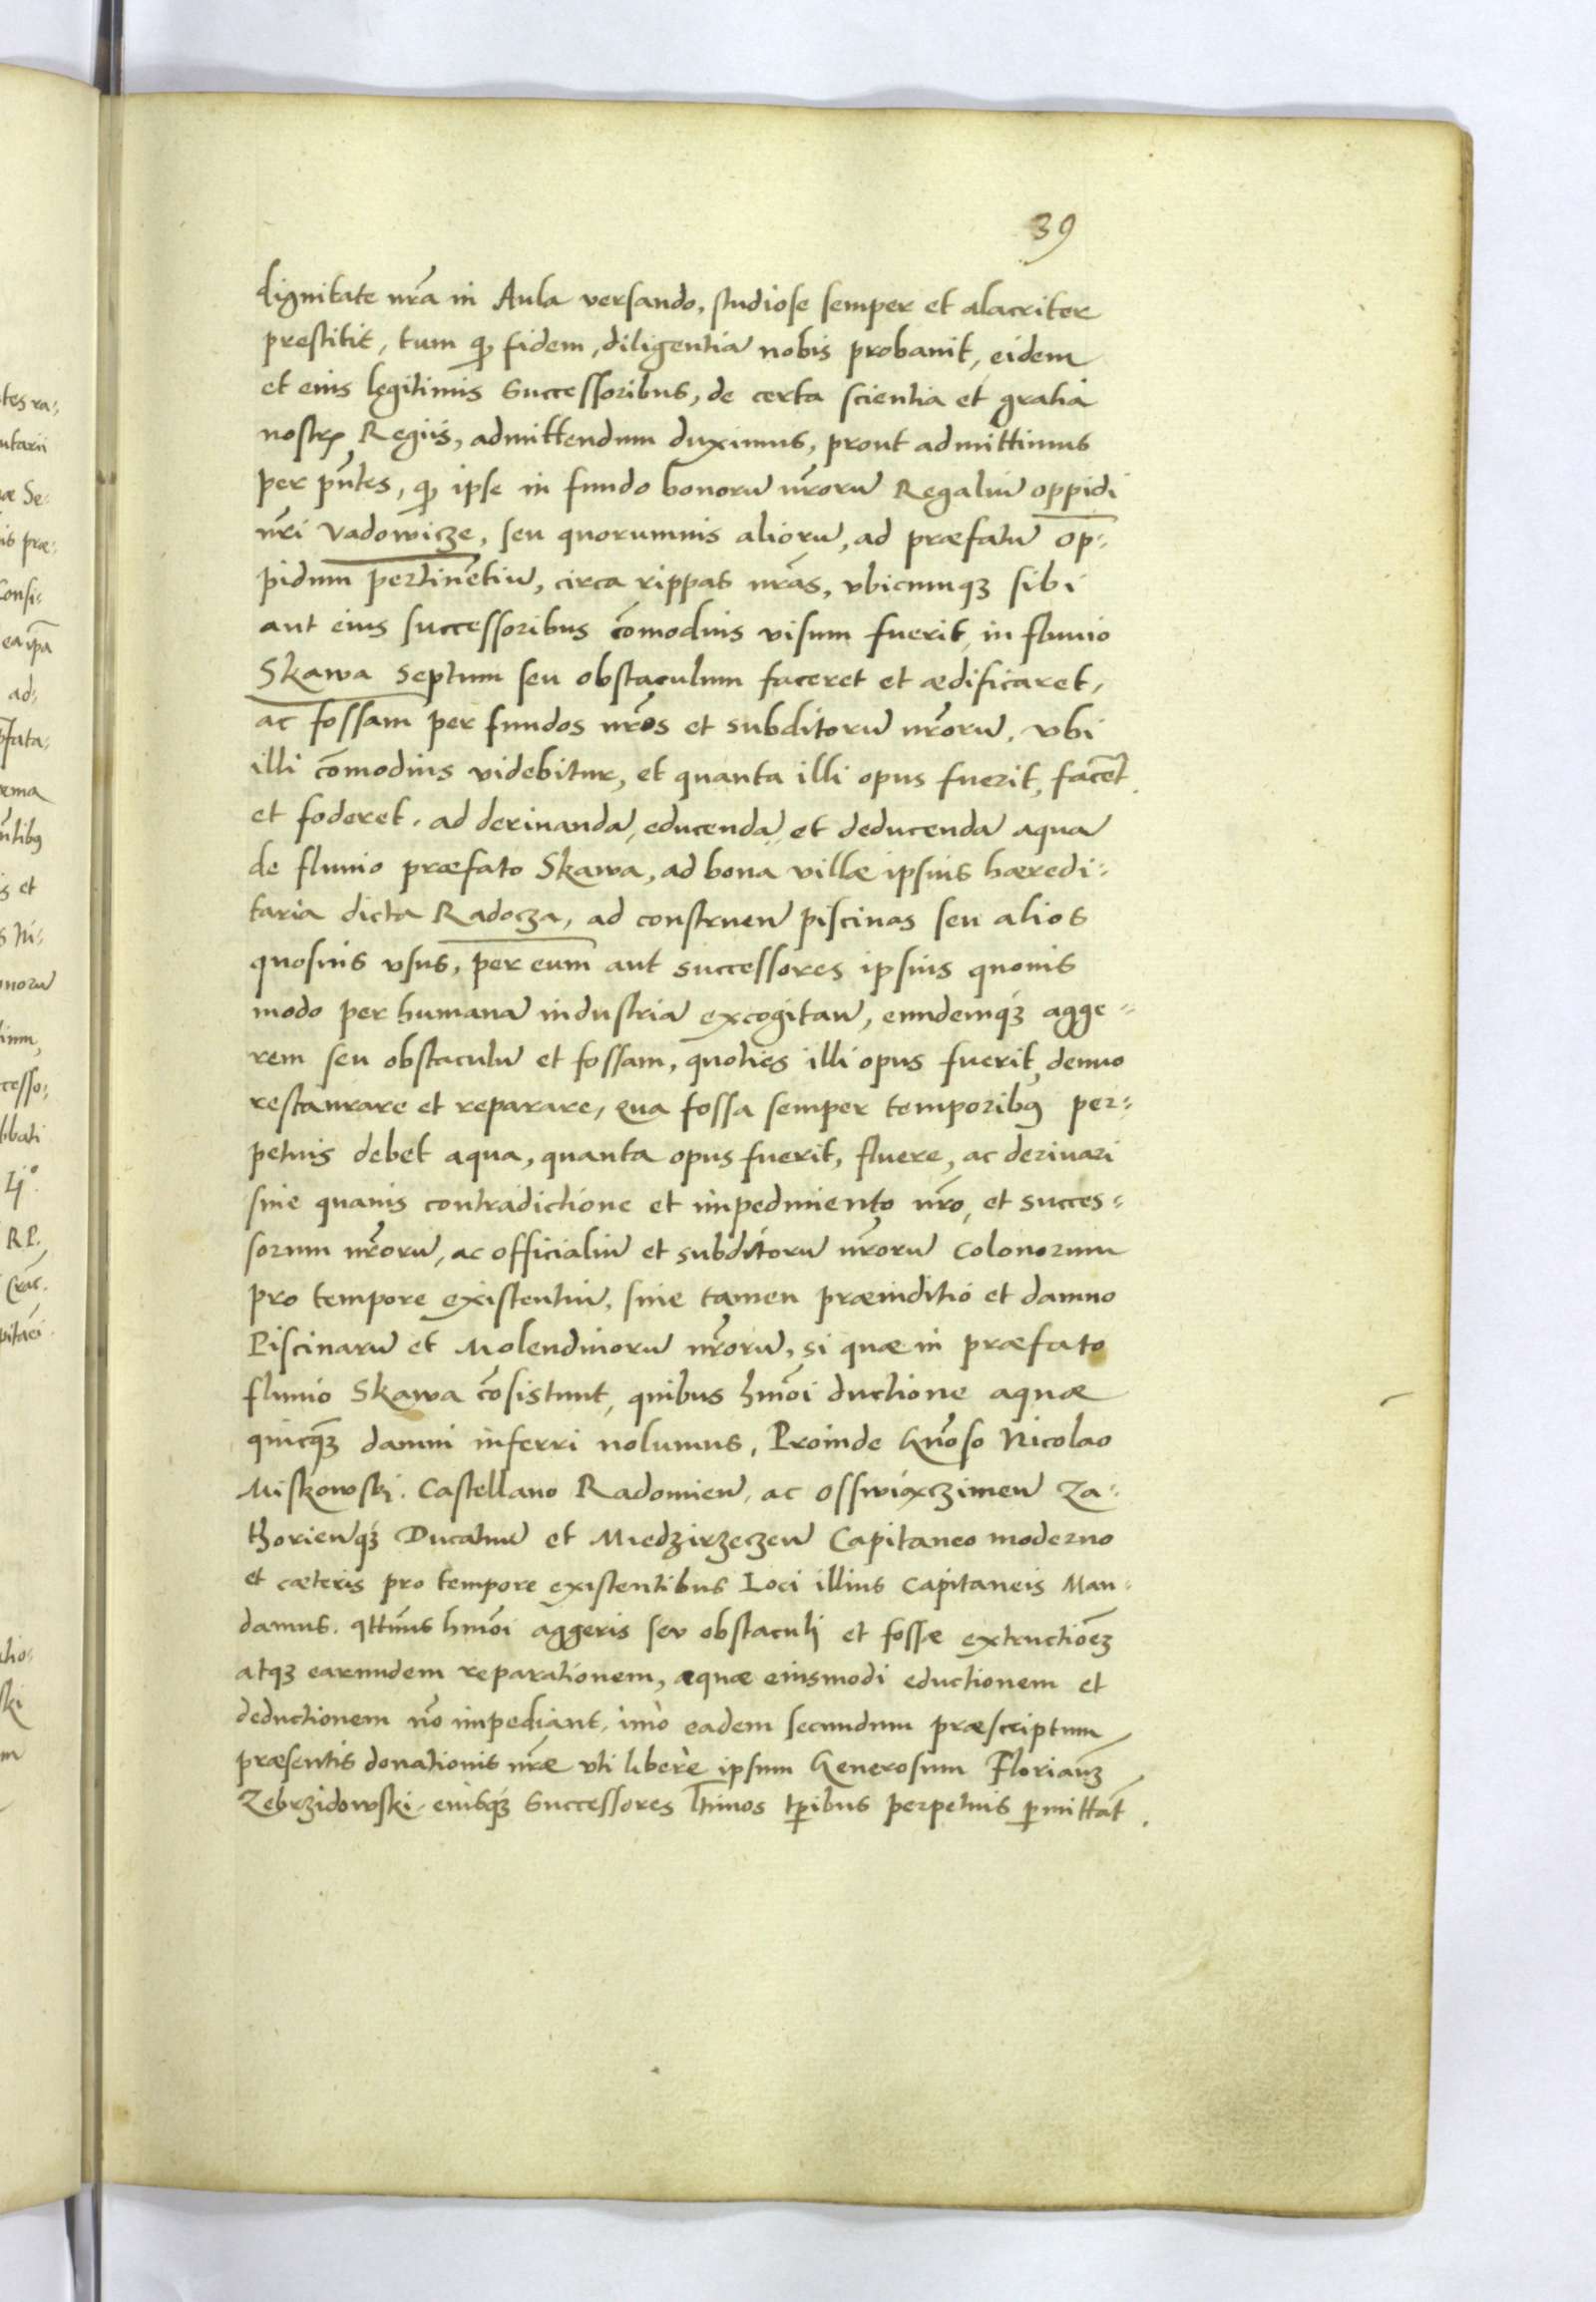 39
dignitate nr̃a in Aula versando, studiose semper et alacriter
prestitit, tum qꝫ fidem, diligentiã nobis probauit, eidem
et eius legitimis Successoribus, de certa scientia et gratia
nostris Regiis, admittendum duximus, prout admittimus
per pñtes, qꝫ ipse in fundo bonorũ nr̃orũ Regaliũ oppidi
nr̃i Vadowicze, seu quorumuis aliorũ, ad præfatũ op:
pidum pertinẽtiũ, circa rippas nr̃as, vbicumqꝫ sibi
aut eius successoribus cõmodius visum fuerit, in fluuio
Skawa Septum seu obstaculum faceret et ædificaret,
ac fossam per fundos nr̃os et subditorũ nr̃orũ, vbi
illi cõmodius videbitur, et quanta illi opus fuerit, facẽt
et foderet, ad deriuandã, educendã et deducendã aquã
de fluuio præfato Skawa, ad bona villæ ipsius hæredi:
taria dicta Radocza, ad construeñ piscinas seu alios
quosuis vsus, per eum aut successores ipsius quouis
modo per humanã industriã excogitañ, eundemqꝫ agge:
rem seu obstaculũ et fossam, quoties illi opus fuerit, denuo
restaurare et reparare, qua fossa semper temporibꝰ per:
petuis debet aqua, quanta opus fuerit, fluere, ac deriuari
sine quauis contradictione et impedimento nr̃o, et succes:
sorum nr̃orũ, ac officialiũ et subditorũ nr̃orũ Colonorum
pro tempore existentiũ, sine tamen præiuditio et damno
Piscinarũ et Molendinorũ nr̃orũ, si quæ in præfato
fluuio Skawa cõsistunt, quibus hm̃oi ductione aquæ
quicqꝫ damni inferri nolumus, Proinde Gñoso Nicolao
Miskowski. Castellano Radomieñ, ac Osswiæczimeñ Za:
thorieñqꝫ Ducatuũ et Miedzirzeczeñ Capitaneo moderno
et cæteris pro tempore existentibus Loci illius Capitaneis Man:
damus. qttñus hm̃oi aggeris seu obstaculi et fossæ extructiõẽ
atqꝫ earundem reparationem, aquæ eiusmodi eductionem et
deductionem nõ impediant, imò eadem secundum præscriptum
præsentis donationis nr̃æ vti liberè ipsum Generosum Florianũ
Zebrzidowski, eiusqꝫ Successores ltimos tp̃ibus perpetuis pmittãt.